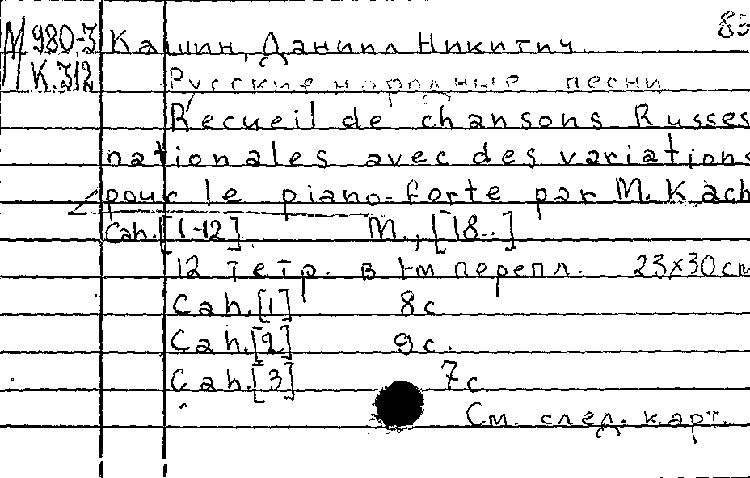 83
М 980-3 Кашин, Даниил Никитич
К.312 Русские народные песни
Recueil de chansons Russes
nationales avec des variations
pour le piano-forte par M. Kach
Cah. [1-12] М., [18..]
12 тетр. в 1м перепл. 23x30см
Cah. [1] 8с
Cah. [2] 9с.
Cah. [3] 7с
См. след. карт.